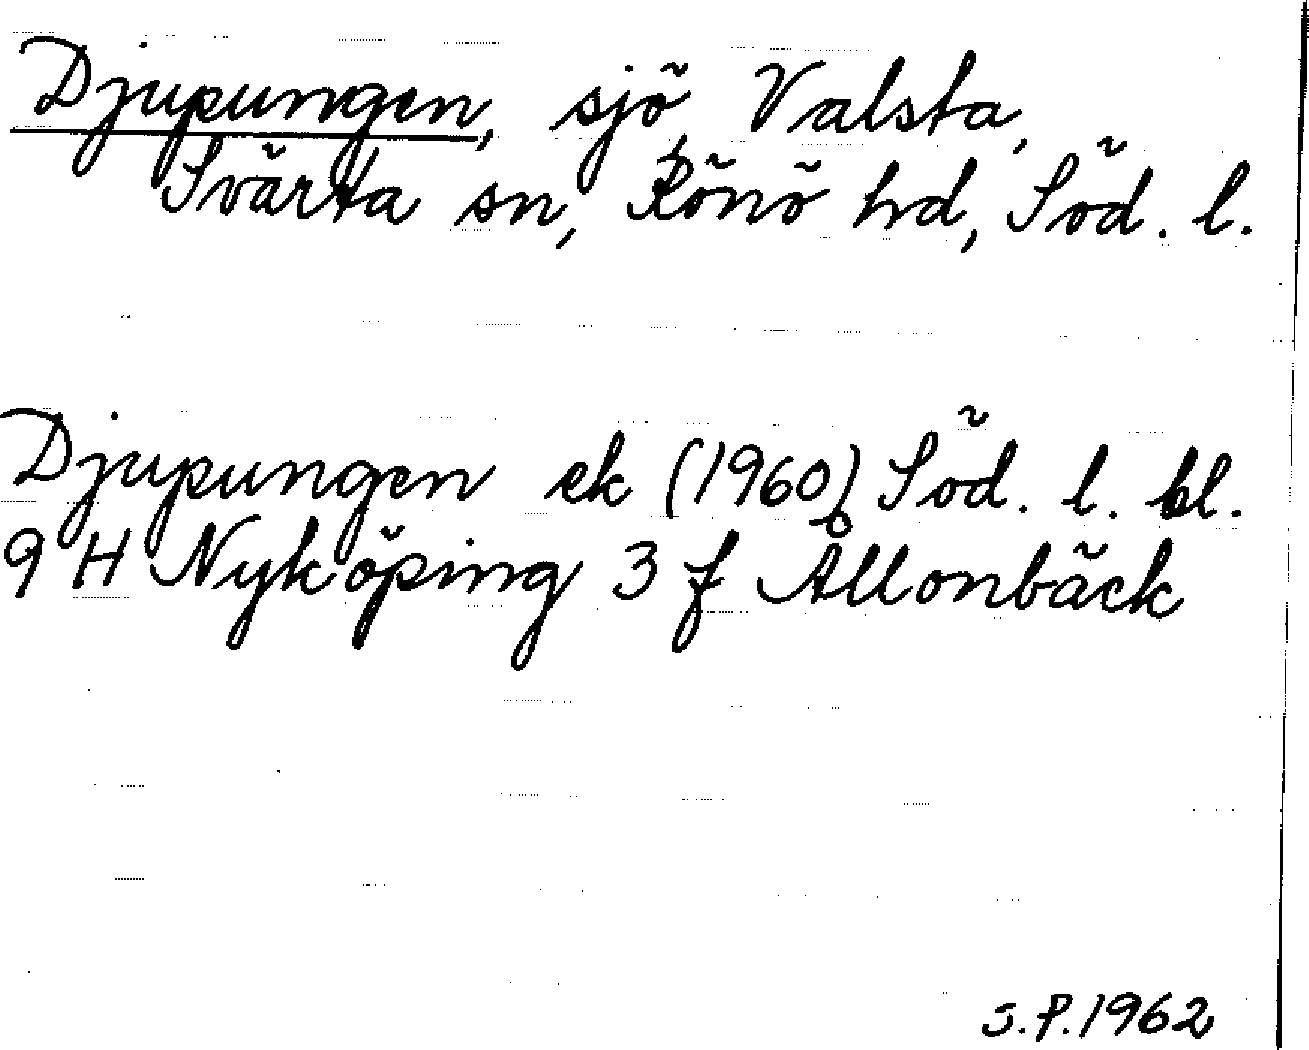 Djupungen, sjö, Valsta,
Svärta sn, Rönö hd, Söd. l.
Djupungen ek (1960) Söd. l. bl.
9 H Nyköping 3 f Ållonbäck
S.P. 1962